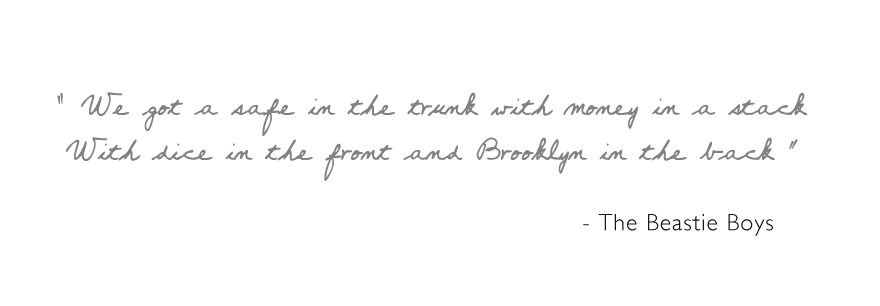 " We got a safe in the trunk with money in a stack
With dice in the front and Brooklyn in the back "
- The Beastie Boys